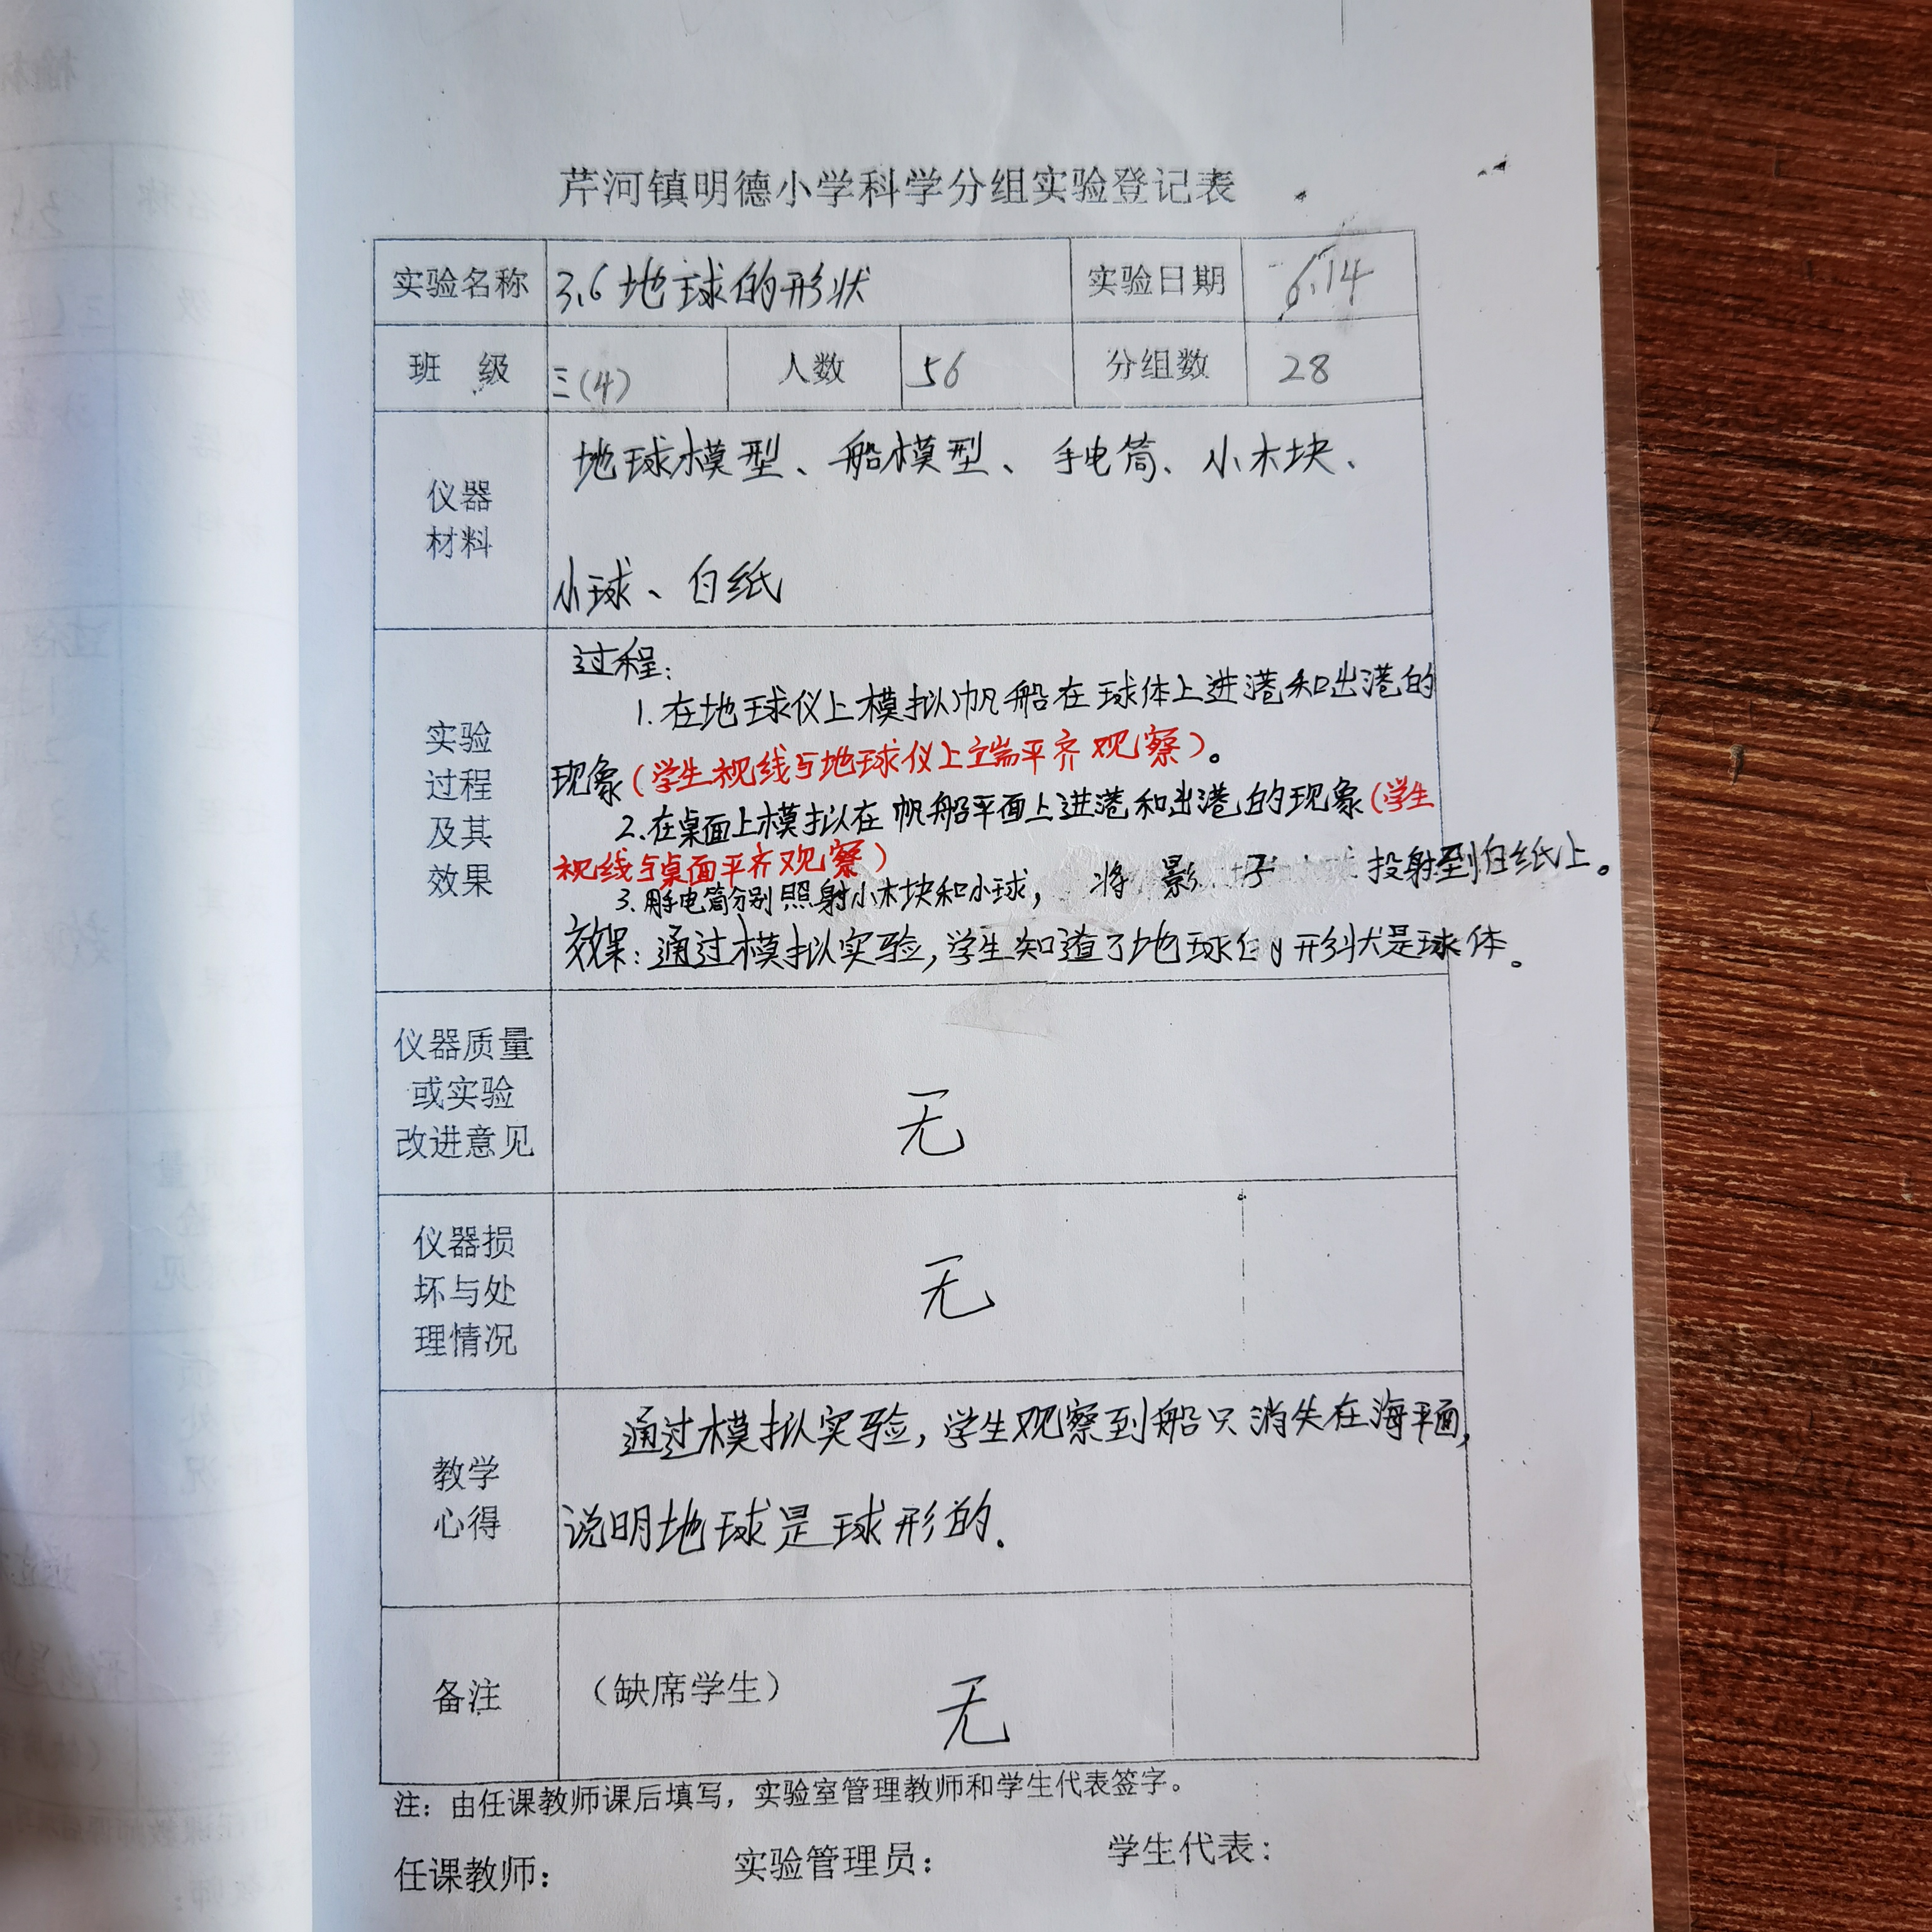 芹河镇明德小学科学分组实验登记表
实验名称 3.6 地球的形状 实验日期 6.14
班 级 三(4) 人数 56 分组数 28
仪器
材料
地球模型、船模型、手电筒、小木块、
小球、白纸
实验
过程
及其
效果
过程:
1.在地球仪上模拟帆船在球体上进港和出港的
现象(学生视线与地球仪上端平齐观察)。
2.在桌面上模拟在帆船平面上进港和出港的现象(学生
视线与桌面平齐观察)
3.用手电筒分别照射小木块和小球, 将影子投射到白纸上。
效果:通过模拟实验,学生知道了地球的形状是球体。
仪器质量
或实验
改进意见
无
仪器损
坏与处
理情况
无
教学
心得
通过模拟实验,学生观察到船只消失在海平面,
说明地球是球形的.
备注
(缺席学生) 无
注:由任课教师课后填写,实验室管理教师和学生代表签字。
任课教师: 实验管理员: 学生代表: